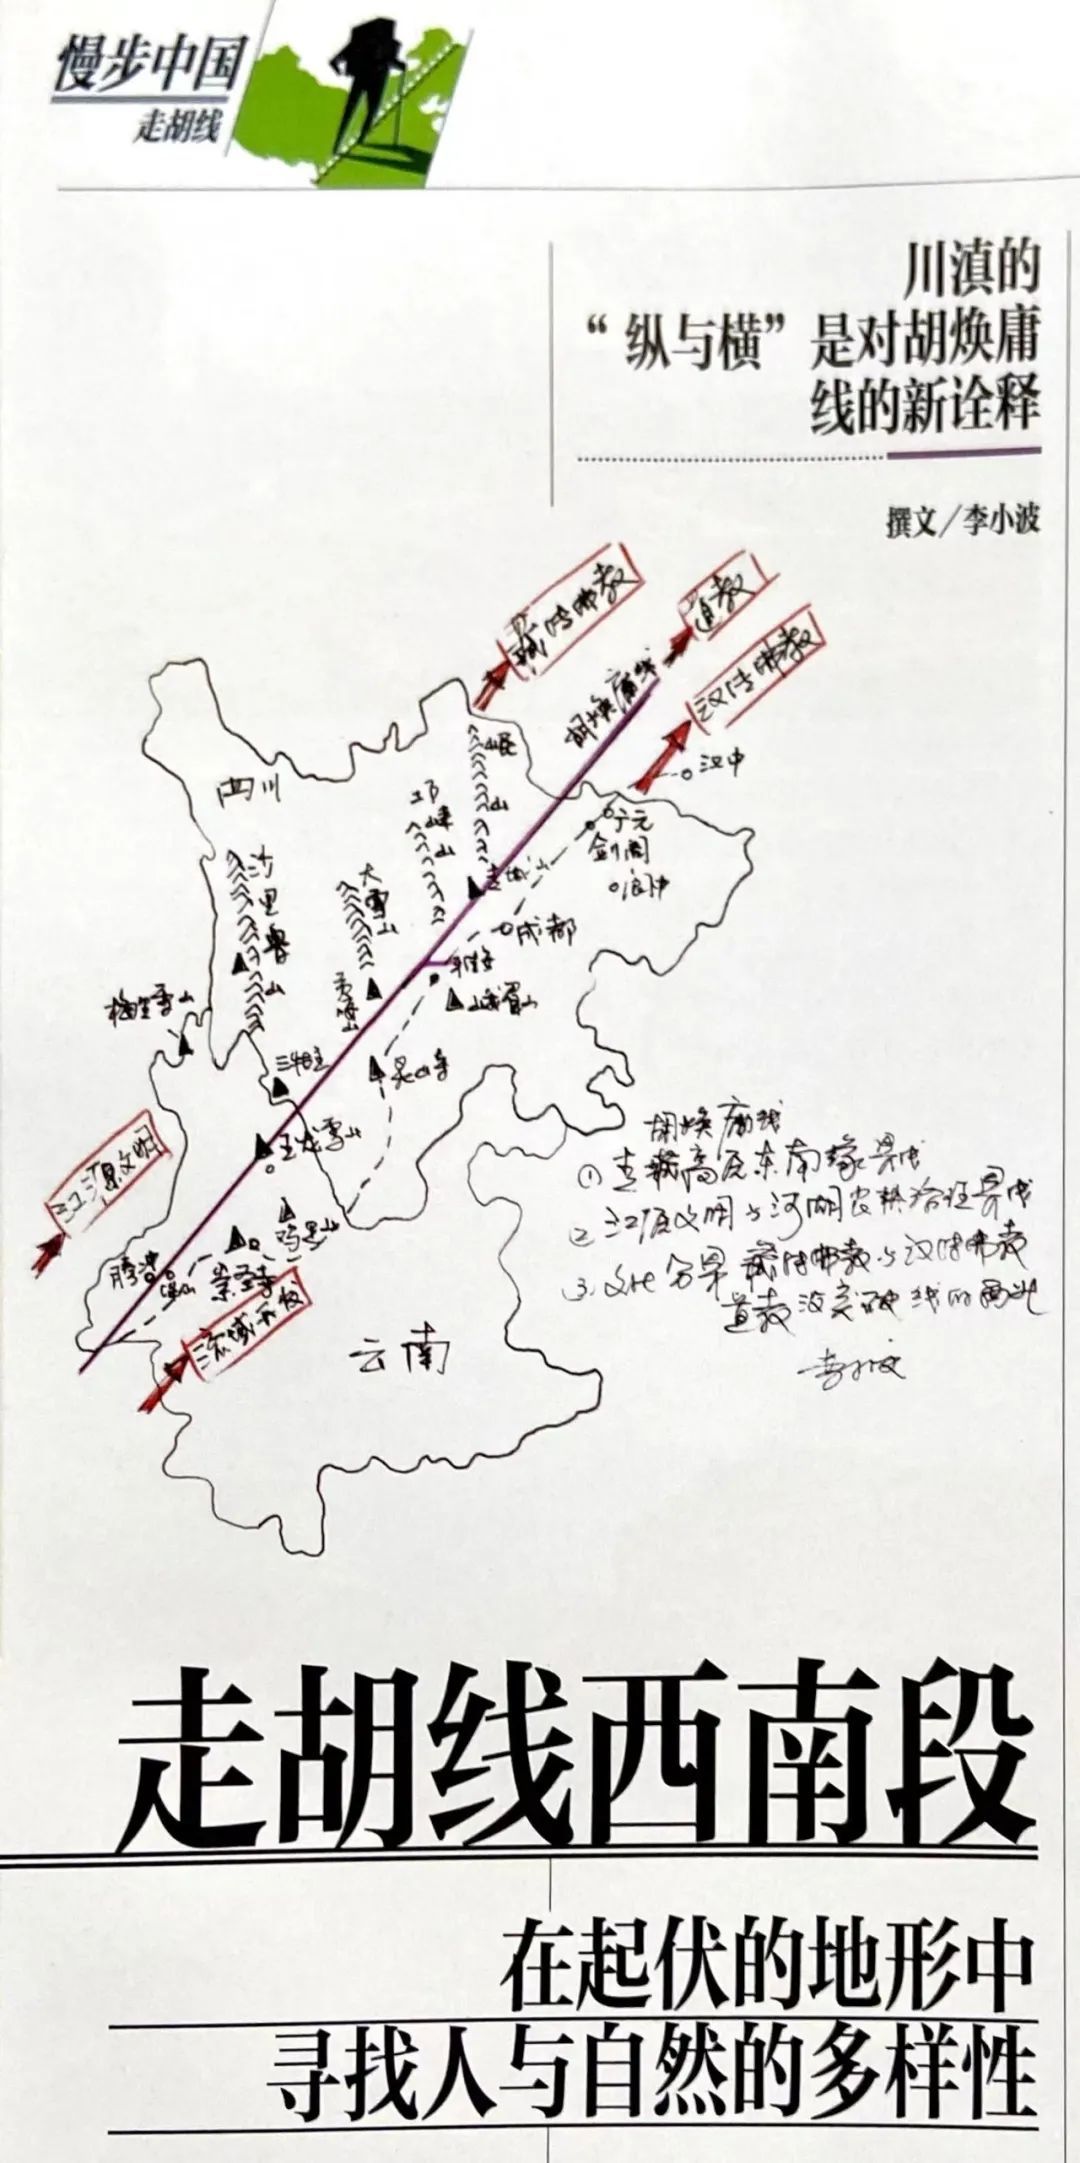 慢步中国
走胡线
川滇的
“纵与横”是对胡焕庸
线的新诠释
撰文／李小波
藏传佛教
道教
汉传佛教
胡焕庸线
汉中
岷山
四川
邛崃山
广元
剑阁
阆中
沙里鲁山
大雪山
青城山
成都
雅安
贡嘎山
峨眉山
梅里雪山
灵山寺
玉龙雪山
江源文明
鸡足山
腾冲
崇圣寺
流域
云南
胡焕庸线
① 青藏高原东南缘界线
2 江源文明与河湖农耕
3. 文化分界 藏传佛教与汉传佛教
道教没突破线的两北
李小波
走胡线西南段
在起伏的地形中
寻找人与自然的多样性